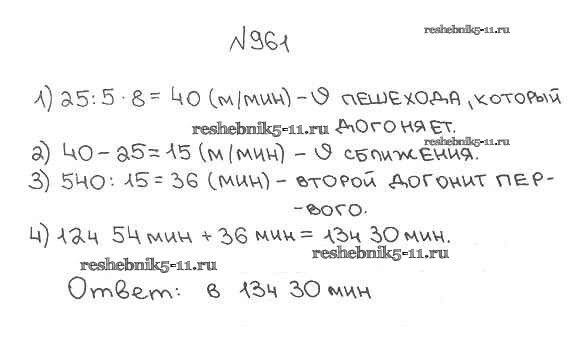 №961
reshebnik5-11.ru
1) 25:5·8=40 (м/мин) – υ пешехода, который
reshebnik5-11.ru догоняет.
reshebnik5-11.ru
2) 40–25=15 (м/мин) – υ сближения.
3) 540:15=36 (мин) – второй догонит пер-
-вого.
4) 12ч 54 мин + 36 мин = 13ч 30 мин.
reshebnik5-11.ru
reshebnik5-11.ru
Ответ: в 13ч 30 мин